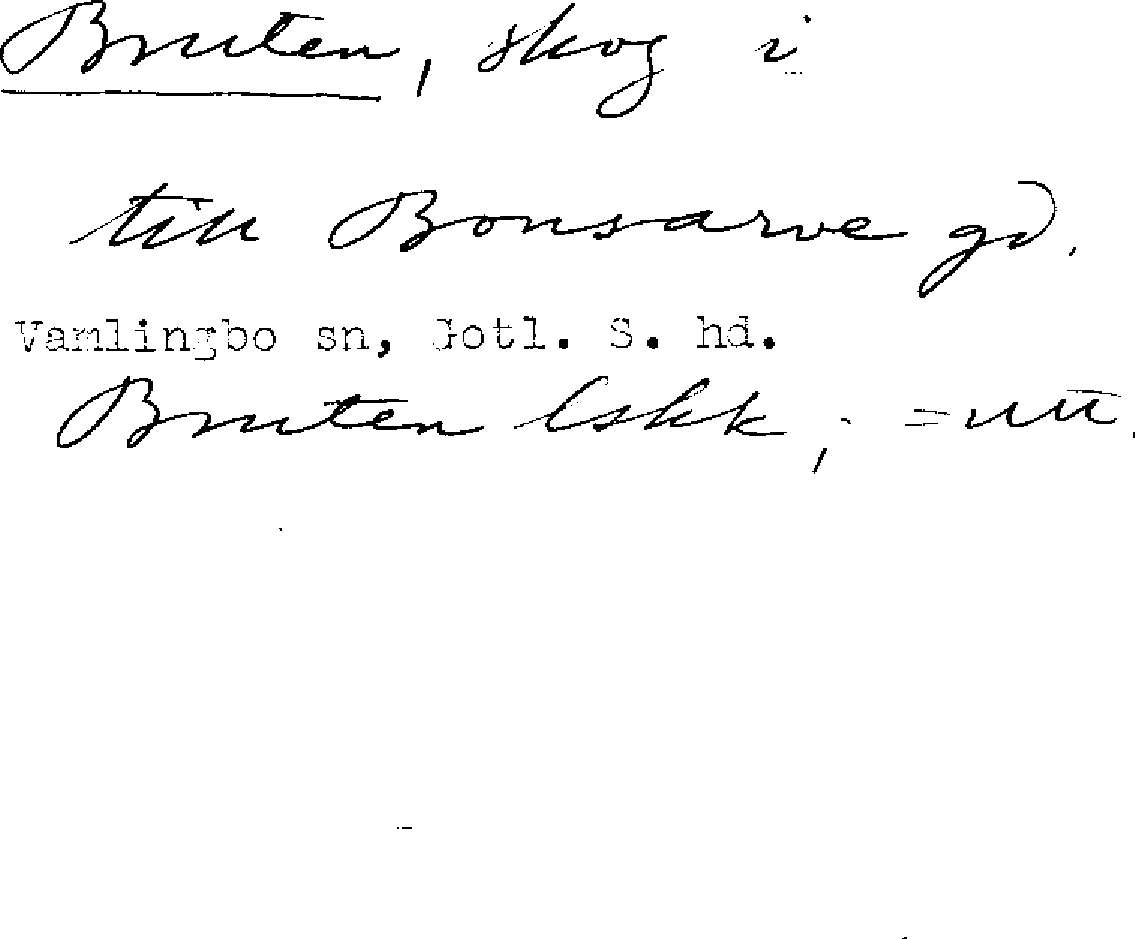 Bruten, skog i
till Bonsarve gd.
Vamlingbo sn, Gotl. S. hd.
Bruten Eskk; = utt.